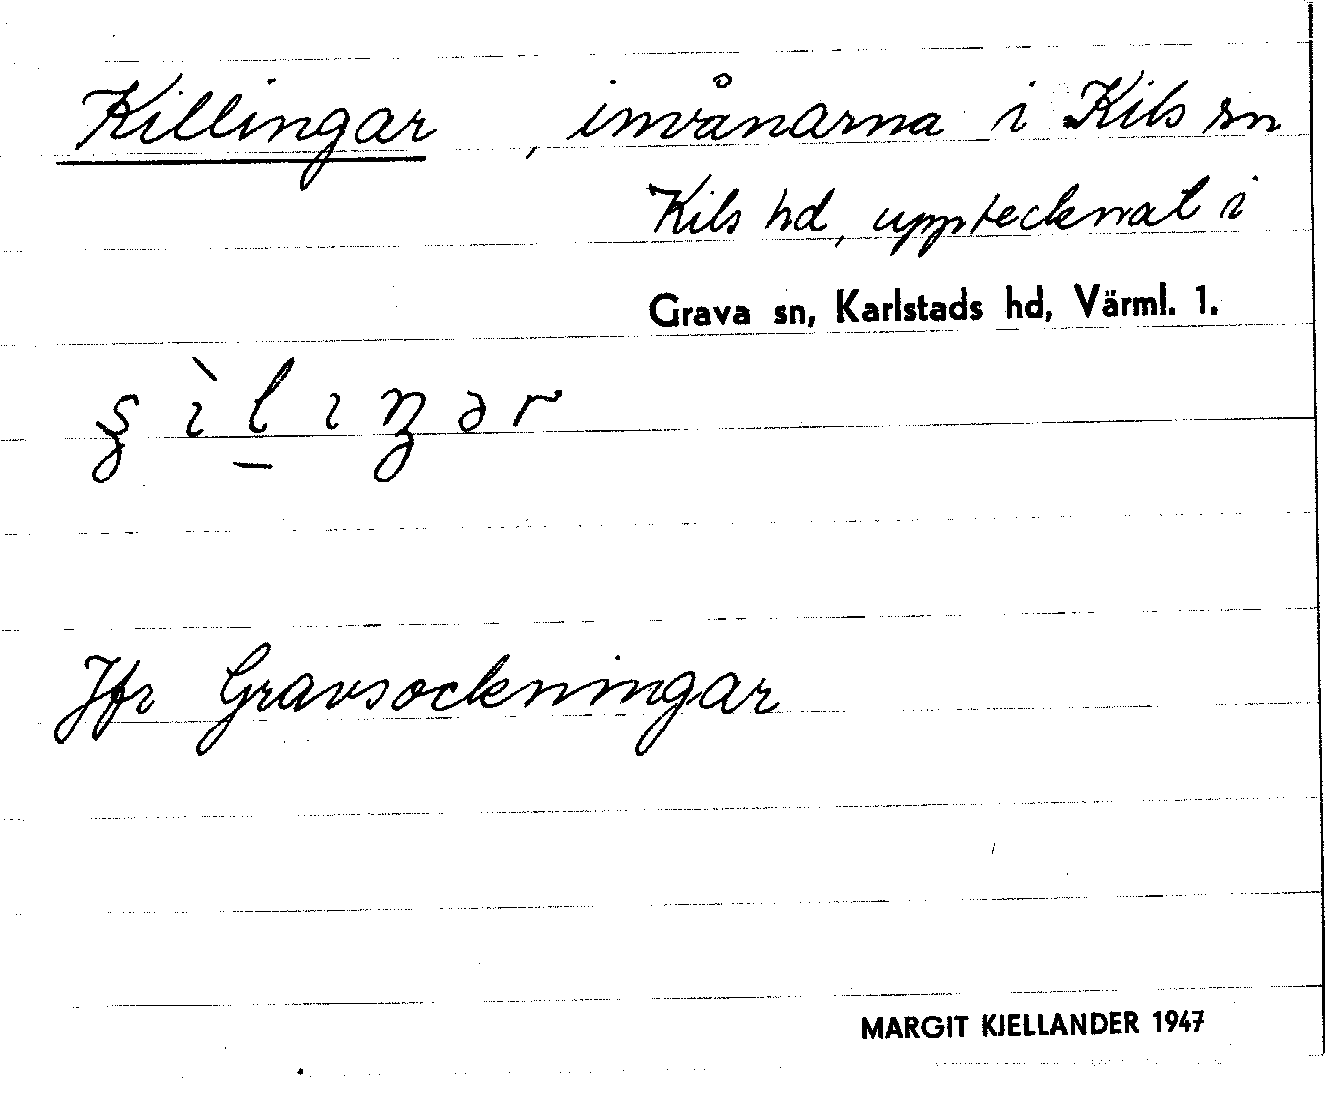 Killingar, invånarna i Kils sn
Kils hd, upptecknat i
Grava sn, Karlstads hd, Värml. 1.
Jfr Gravsockningar
MARGIT KJELLANDER 1947